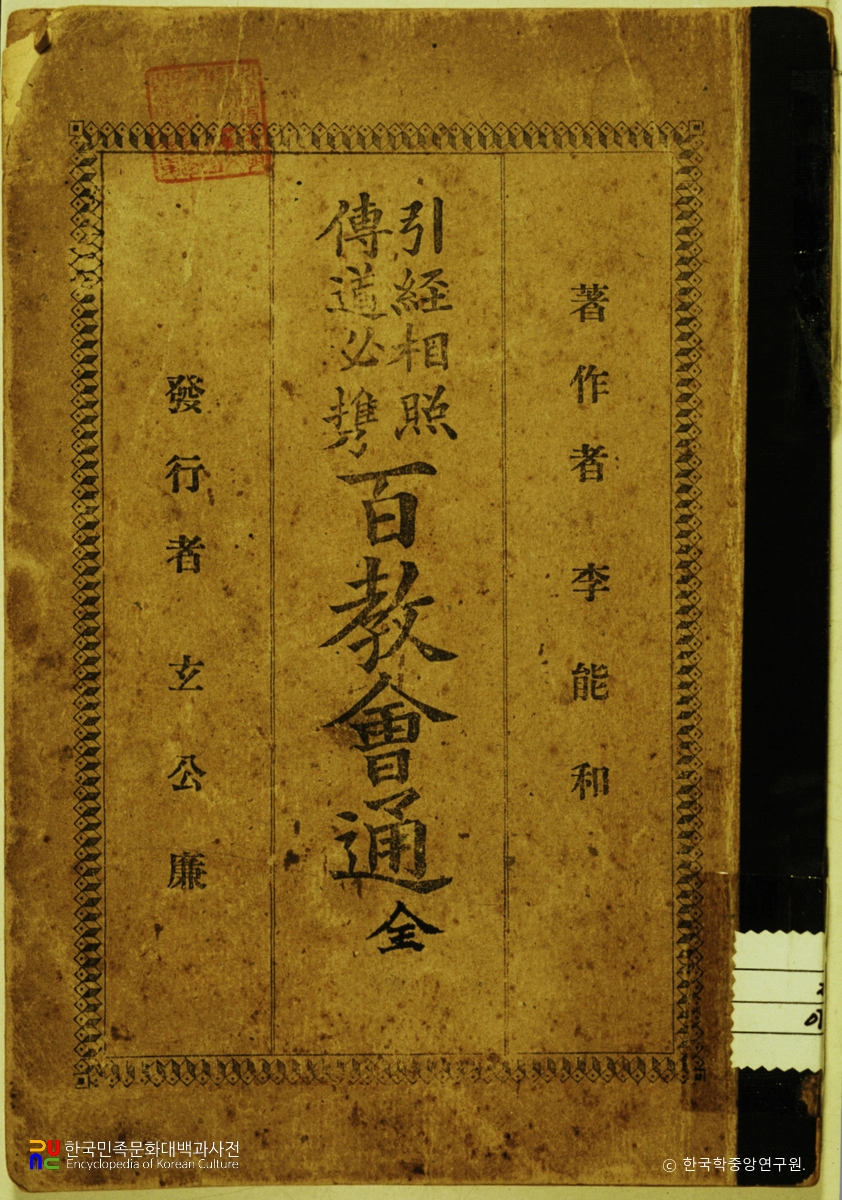 著作者 李能和
引経相照
傳道必携
百教會通 全
發行者 玄公廉
한국민족문화대백과사전
Encyclopedia of Korean Culture
ⓒ 한국학중앙연구원.